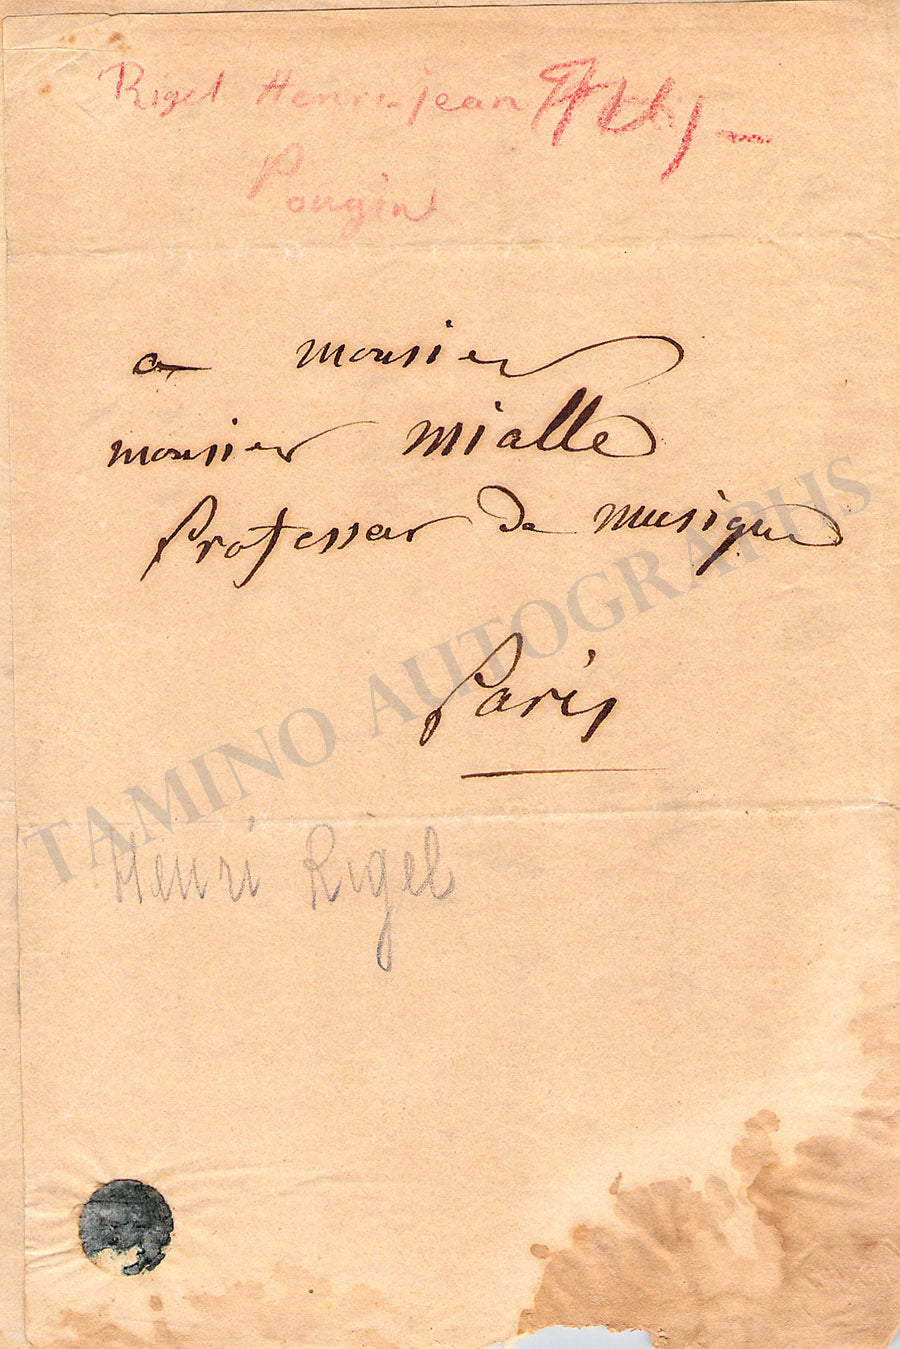 Rigel Henri-jean
Pougin
a monsier
monsier mialle
professeur de musique
Paris
TAMINO AUTOGRAPHS
Henri Rigel